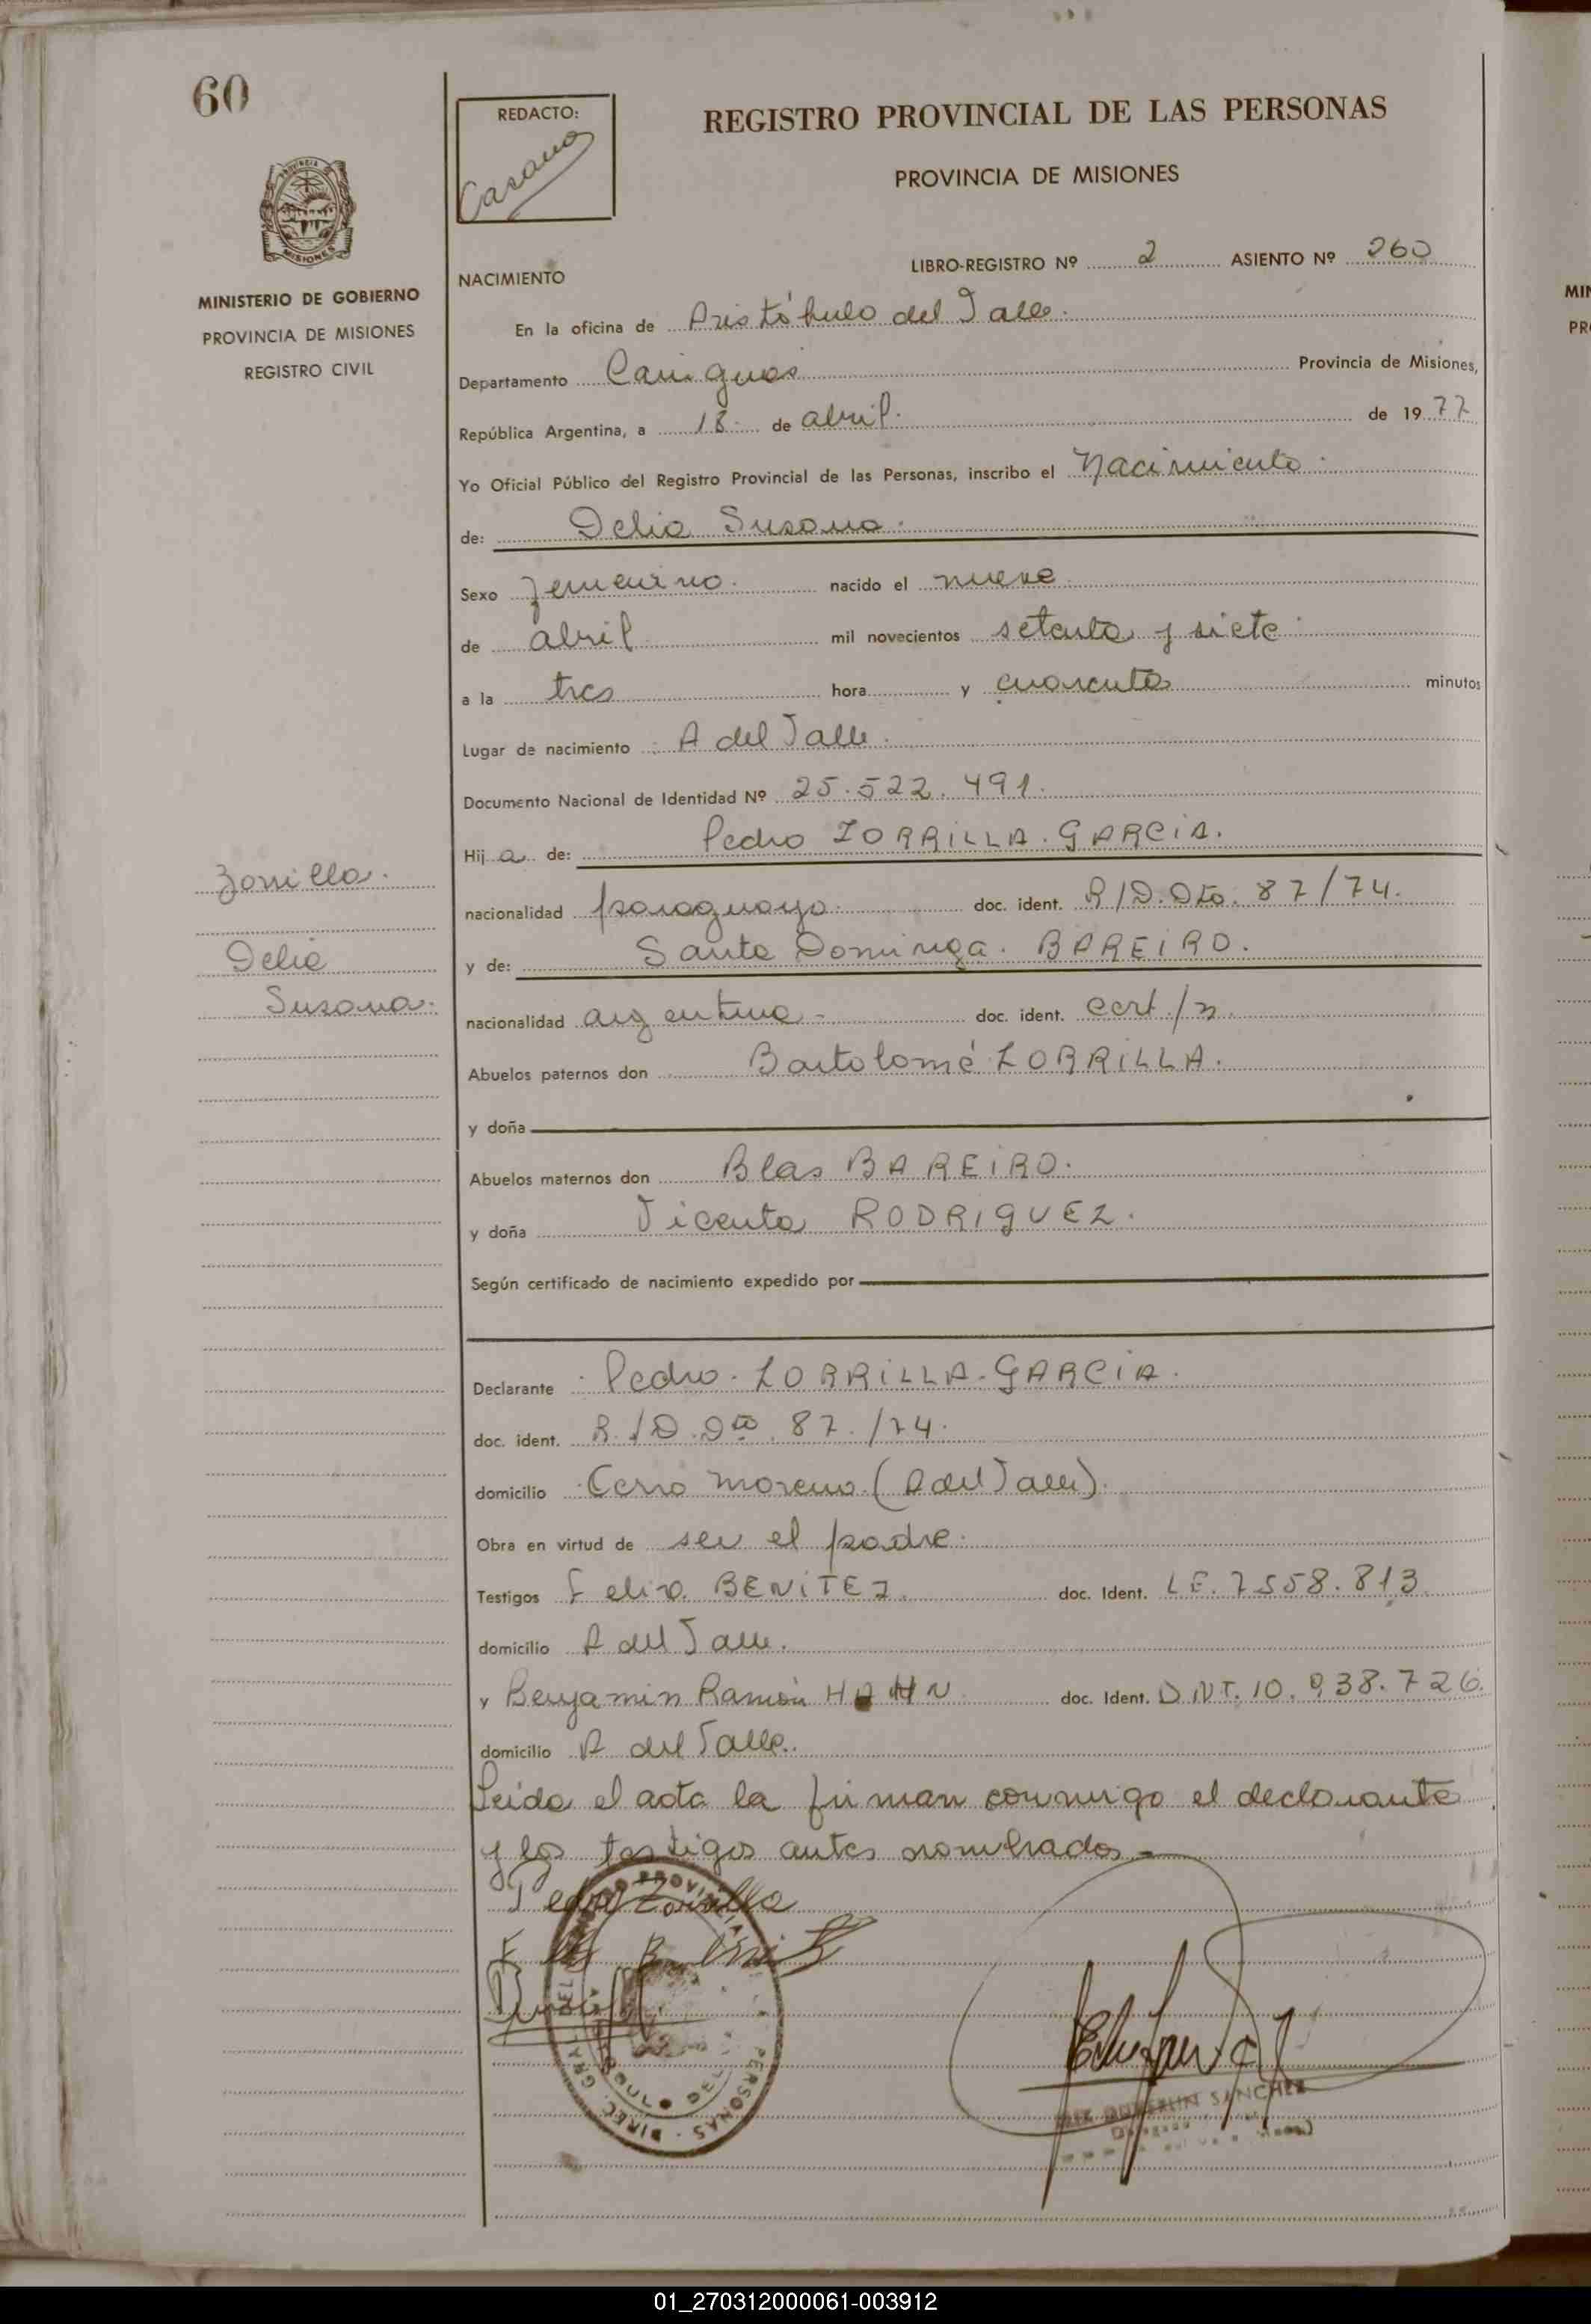 60
REDACTO:
REGISTRO PROVINCIAL DE LAS PERSONAS
PROVINCIA DE MISIONES
MISIONES
MINISTERIO DE GOBIERNO
PROVINCIA DE MISIONES
REGISTRO CIVIL
NACIMIENTO
LIBRO-REGISTRO Nº 2 ASIENTO Nº 260
En la oficina de Aristóbulo del Valle.
Departamento Cainguás Provincia de Misiones,
República Argentina, a 18 de abril. de 1977
Yo Oficial Público del Registro Provincial de las Personas, inscribo el Nacimiento.
de: Delia Susana.
Sexo femenino. nacido el nueve
de abril mil novecientos setenta y siete
a la tres hora y cuarenta minutos
Lugar de nacimiento A del Valle.
Documento Nacional de Identidad Nº 25.522.491.
Hij a de: Pedro ZORRILLA.GARCIA.
nacionalidad paraguayo. doc. ident. R/D.Dto. 87/74.
y de: Santa Dominga. BAREIRO.
nacionalidad argentina - doc. ident. cert/n.
Abuelos paternos don Bartolomé ZORRILLA.
y doña
Abuelos maternos don Blas BAREIRO.
y doña Vicenta RODRIGUEZ.
Según certificado de nacimiento expedido por
Declarante Pedro. ZORRILLA.GARCIA.
doc. ident. R./D.Dto. 87./74.
domicilio Cerro Moreno.(A del Valle).
Obra en virtud de ser el padre.
Testigos BENITEZ. doc. Ident. LE.7558.813
domicilio A del Valle.
y Benjamin Ramón doc. Ident. D.N.I. 10.938.726.
domicilio A del Valle.
Leida el acta la firman conmigo el declarante
y los testigos antes nombrados -
Pedro Zorrilla
PERSONAS
DIREC. GRAL. DEL
SANCHEZ
Zorrilla.
Delia
Susana.
MIN
PR
01_270312000061-003912